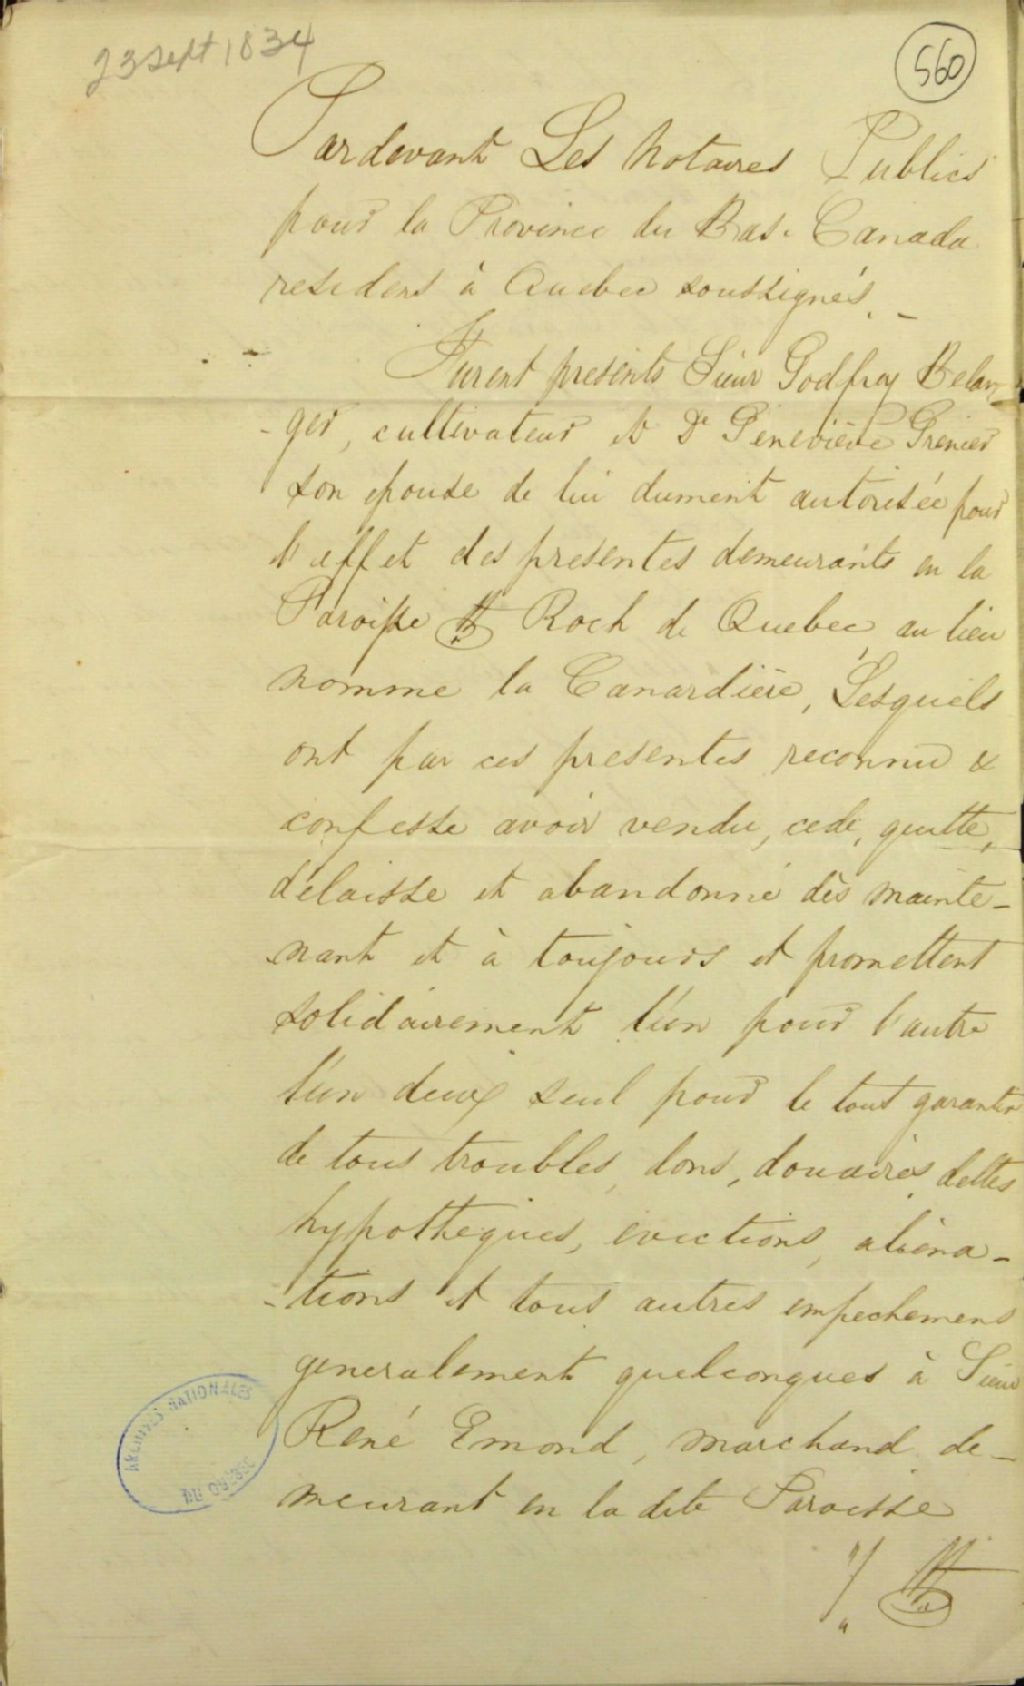 23 Sept 1834
560
Pardevant Les Notaires Publics
pour la Province du Bas-Canada
residens à Quebec soussignés. _
Furent presents Sieur Godfroy Belan-
-ger, cultivateur et De Geneviève Grenier
son epouse de lui dument autorisée pour
l'effet des presentes demeurants en la
Paroisse St Roch de Quebec au lieu
nomme la Canardière, Lesquels
ont par ces presentes reconnu &
confesse avoir vendu, cede, quitte,
délaisse et abandonné dès mainte-
nant et à toujours et promettent
solidairement l'un pour l'autre
l'un deux seul pour le tout garantir
de tous troubles, dons, douaires, dettes
hypotheques, evictions, aliena-
-tions et tous autres empechemens
generalement quelconques à Sieur
René Emond, marchand de-
meurant en la dite Paroisse
St
ARCHIVES NATIONALES
DU QUEBEC